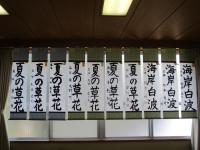 海岸白波
海岸白波
海岸白波
夏の草花
夏の草花
夏の草花
夏の草花
夏の草花
夏の草花
夏の草花